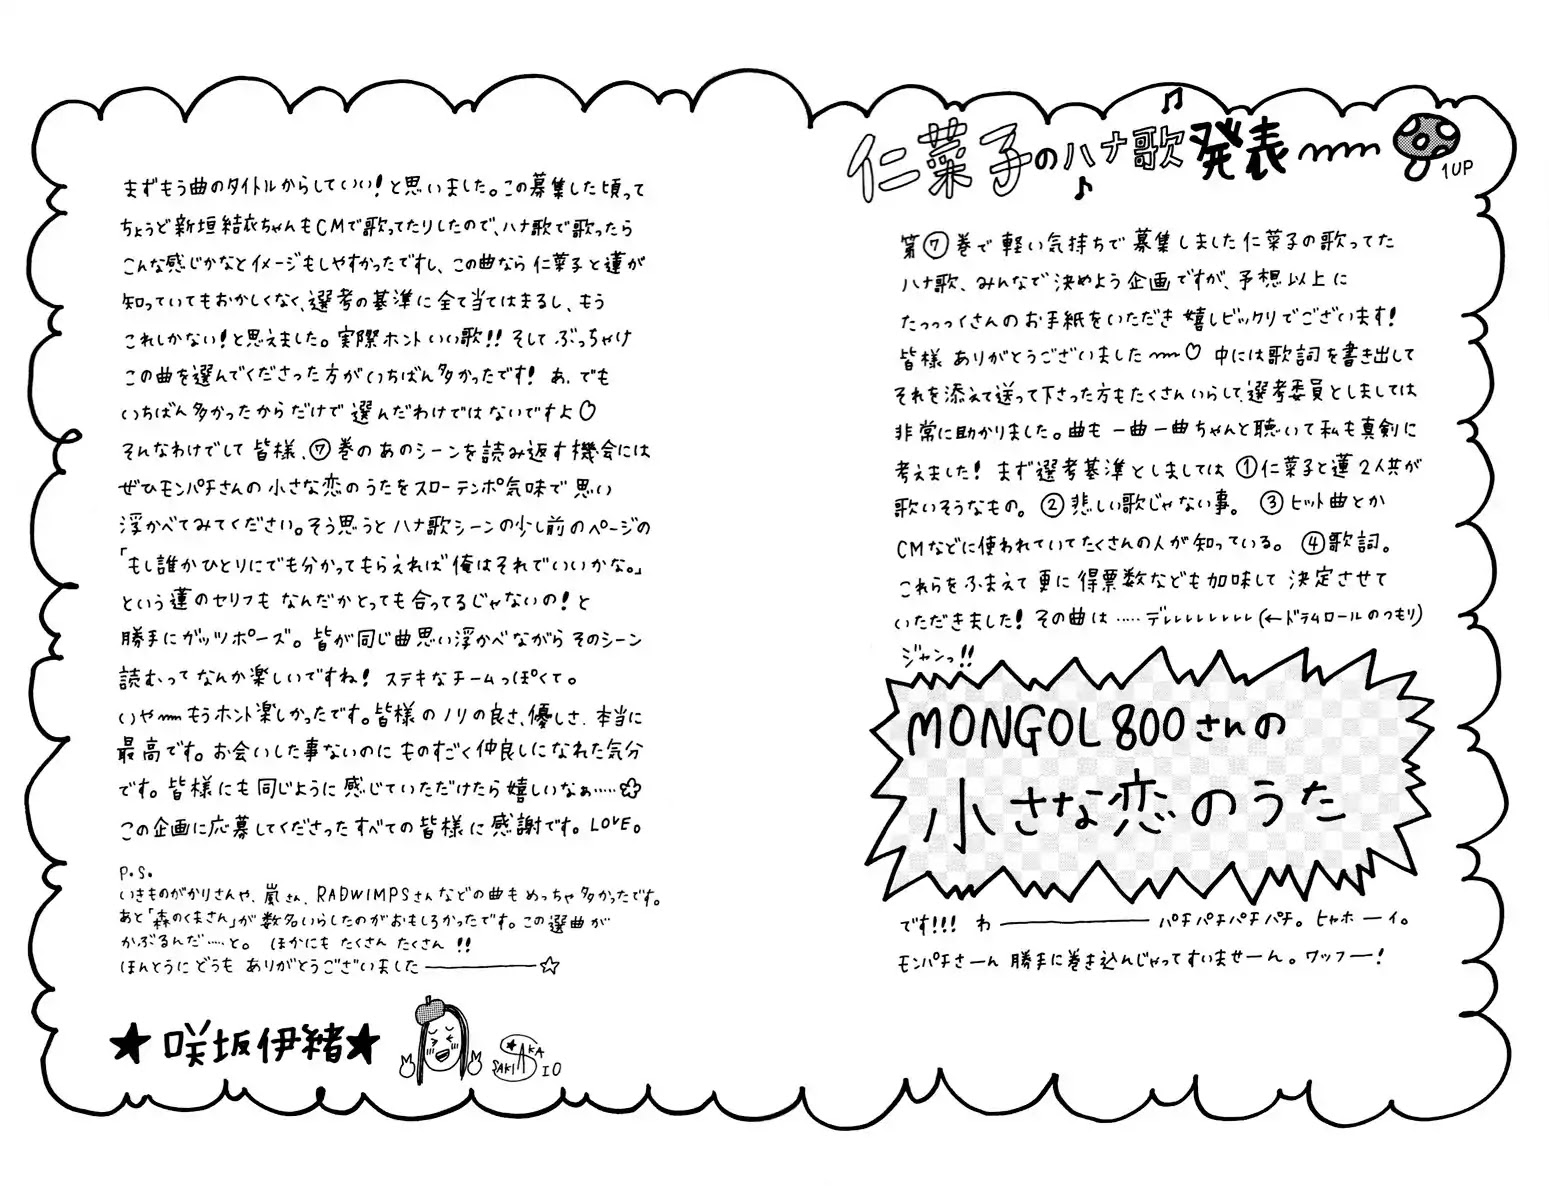 仁菜子のハナ歌発表〜
1UP
第⑦巻で軽い気持ちで募集しました仁菜子の歌ってた
ハナ歌、みんなで決めよう企画ですが、予想以上に
たっっっくさんのお手紙をいただき嬉しビックリでございます!
皆様ありがとうございました〜♡ 中には歌詞を書き出して
それを添えて送って下さった方もたくさんいらして、選考委員としましては
非常に助かりました。曲も一曲一曲ちゃんと聴いて私も真剣に
考えました! まず選考基準としましては ①仁菜子と蓮2人共が
歌いそうなもの。 ②悲しい歌じゃない事。 ③ヒット曲とか
CMなどに使われていてたくさんの人が知っている。 ④歌詞。
これらをふまえて更に得票数なども加味して決定させて
いただきました! その曲は……デレレレレレレレレ(←ドラムロールのつもり)
ジャンっ!!
MONGOL800さんの
小さな恋のうた
です!!! わ―――――パチパチパチパチ。ヒャホーイ。
モンパチさーん勝手に巻き込んじゃってすいませーん。ワッフー!
まずもう曲のタイトルからしていい!と思いました。この募集した頃って
ちょうど新垣結衣ちゃんもCMで歌ってたりしたので、ハナ歌で歌ったら
こんな感じかなとイメージもしやすかったですし、この曲なら仁菜子と蓮が
知っていてもおかしくなく、選考の基準に全て当てはまるし、もう
これしかない!と思えました。実際ホントいい歌!! そしてぶっちゃけ
この曲を選んでくださった方がいちばん多かったです! あ、でも
いちばん多かったからだけで選んだわけではないですよ♡
そんなわけでして皆様、⑦巻のあのシーンを読み返す機会には
ぜひモンパチさんの小さな恋のうたをスローテンポ気味で思い
浮かべてみてください。そう思うとハナ歌シーンの少し前のページの
「もし誰かひとりにでも分かってもらえれば俺はそれでいいかな。」
という蓮のセリフもなんだかとっても合ってるじゃないの!と
勝手にガッツポーズ。皆が同じ曲思い浮かべながらそのシーン
読むってなんか楽しいですね! ステキなチームっぽくて。
いや〜もうホント楽しかったです。皆様のノリの良さ、優しさ、本当に
最高です。お会いした事ないのにものすごく仲良しになれた気分
です。皆様にも同じように感じていただけたら嬉しいなぁ……✿
この企画に応募してくださったすべての皆様に感謝です。LOVE。
P.S.
いきものがかりさんや、嵐さん、RADWIMPSさんなどの曲もめっちゃ多かったです。
あと「森のくまさん」が数名いらしたのがおもしろかったです。この選曲が
かぶるんだ……と。 ほかにもたくさんたくさん!!
ほんとうにどうもありがとうございました―――――☆
★咲坂伊緒★
SAKISAKA IO